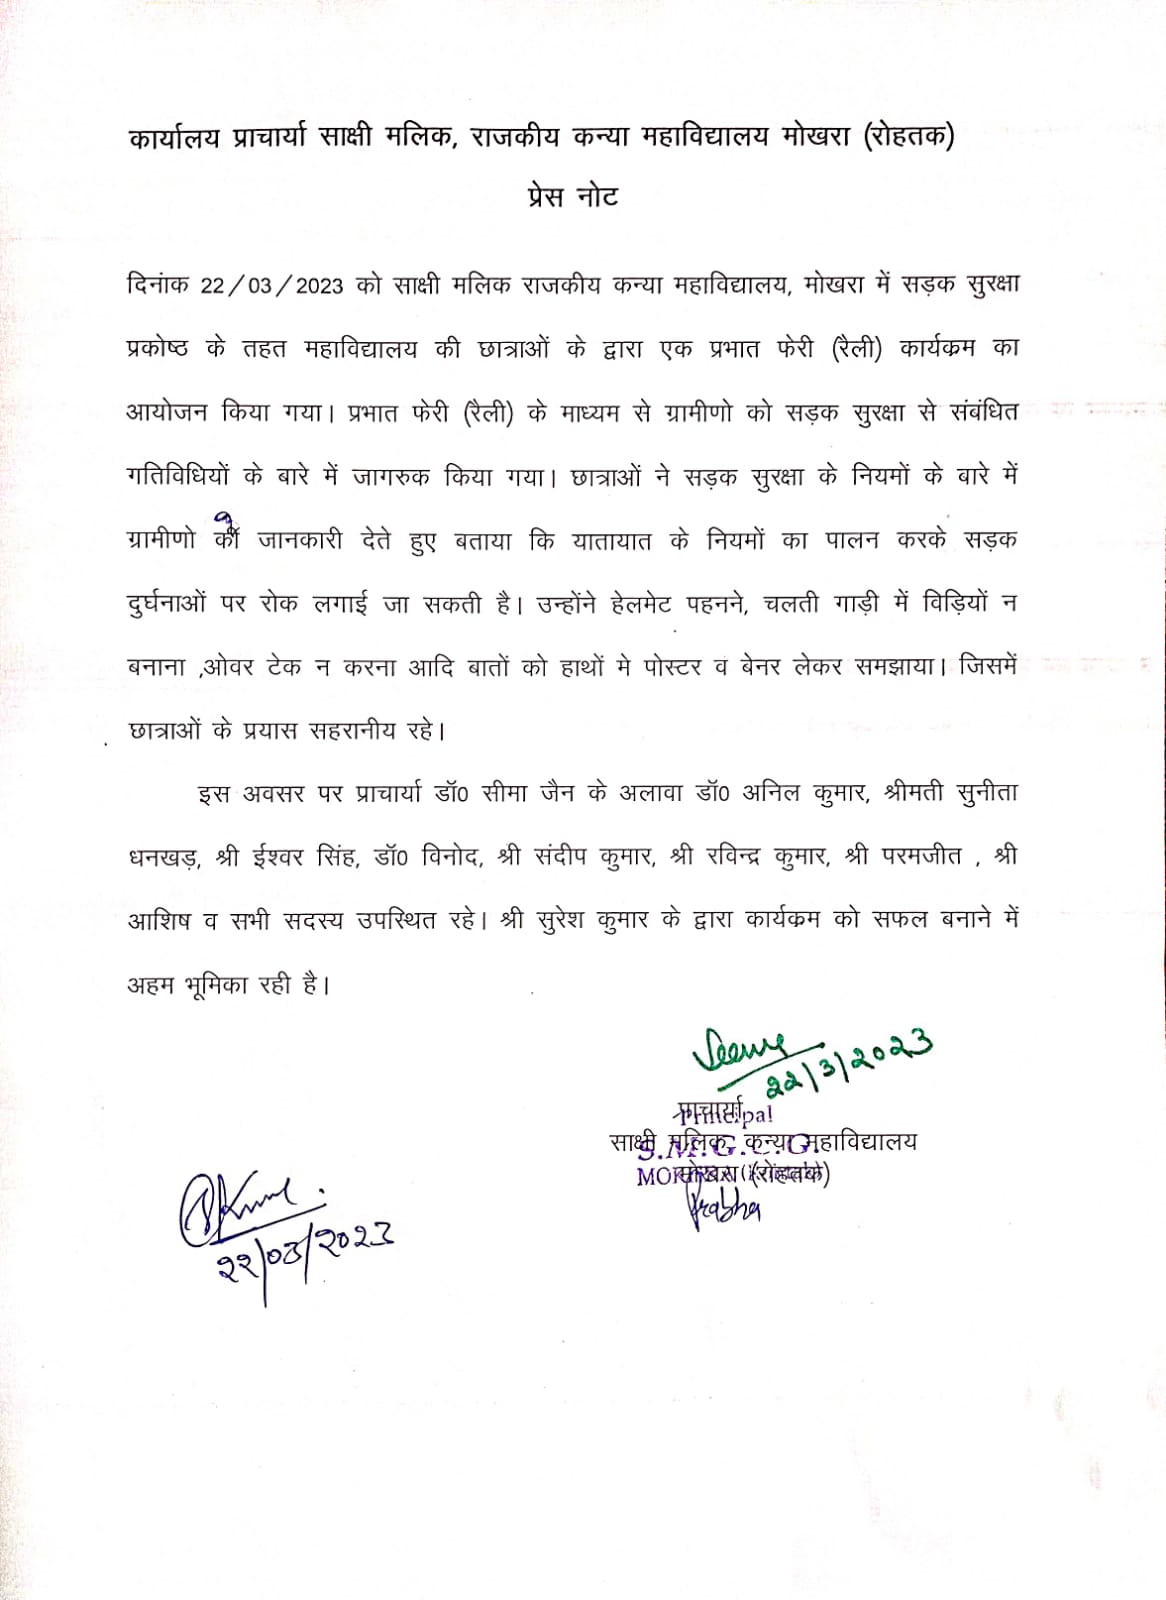 कार्यालय प्राचार्या साक्षी मलिक, राजकीय कन्या महाविद्यालय मोखरा (रोहतक)
प्रेस नोट
दिनांक 22/03/2023 को साक्षी मलिक राजकीय कन्या महाविद्यालय, मोखरा में सड़क सुरक्षा
प्रकोष्ठ के तहत महाविद्यालय की छात्राओं के द्वारा एक प्रभात फेरी (रैली) कार्यकम का
आयोजन किया गया। प्रभात फेरी (रैली) के माध्यम से ग्रामीणो को सड़क सुरक्षा से संबंधित
गतिविधियों के बारे में जागरुक किया गया। छात्राओं ने सड़क सुरक्षा के नियमों के बारे में
ग्रामीणो को जानकारी देते हुए बताया कि यातायात के नियमों का पालन करके सड़क
दुर्घनाओं पर रोक लगाई जा सकती है। उन्होंने हेलमेट पहनने, चलती गाड़ी में विड़ियों न
बनाना ,ओवर टेक न करना आदि बातों को हाथों मे पोस्टर व बेनर लेकर समझाया। जिसमें
छात्राओं के प्रयास सहरानीय रहे।
इस अवसर पर प्राचार्या डॉ0 सीमा जैन के अलावा डॉ0 अनिल कुमार, श्रीमती सुनीता
धनखड़, श्री ईश्वर सिंह, डॉ0 विनोद, श्री संदीप कुमार, श्री रविन्द्र कुमार, श्री परमजीत , श्री
आशिष व सभी सदस्य उपस्थित रहे। श्री सुरेश कुमार के द्वारा कार्यकम को सफल बनाने में
अहम भूमिका रही है।
Seema
22/3/2023
प्राचार्या
Principal
साक्षी मलिक कन्या महाविद्यालय
S.M.G.C.G.
मोखरा (रोहतक)
Prabha
22/03/2023